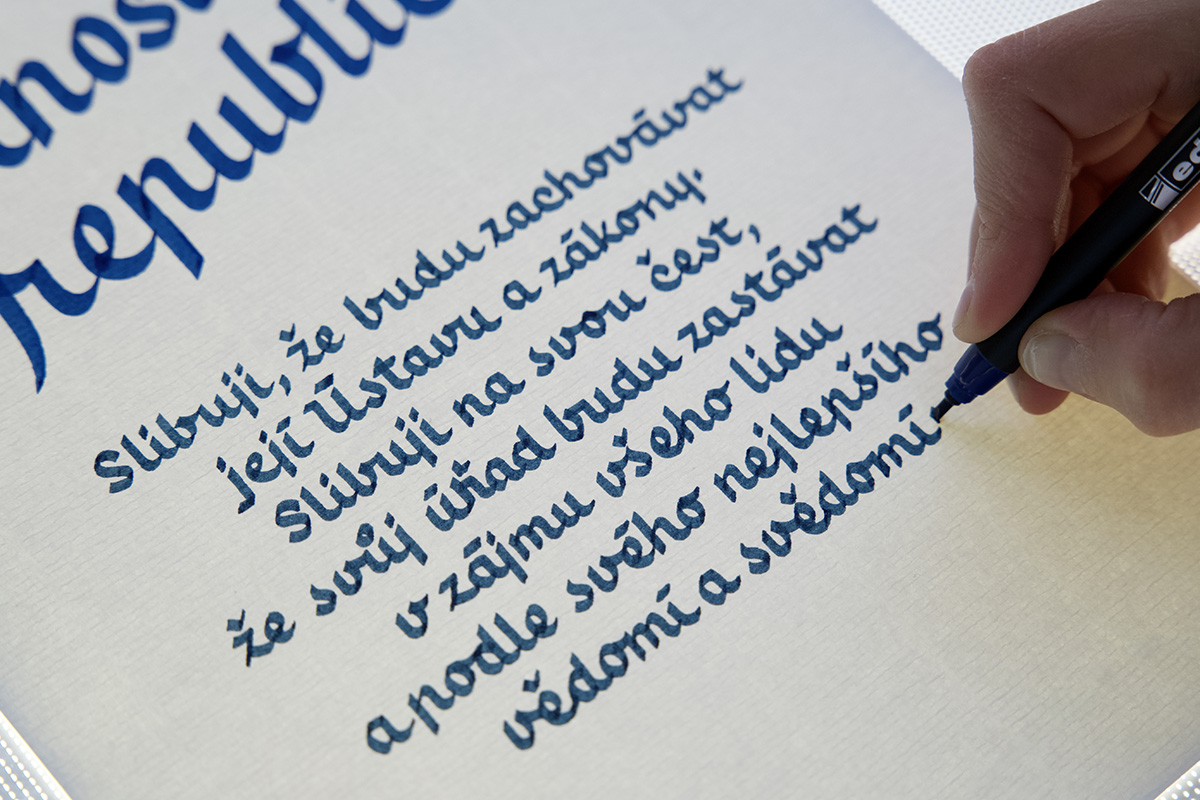 republic
Slibuji, že budu zachovávat
její Ústavu a zákony.
Slibuji na svou čest,
že svůj úřad budu zastávat
v zájmu všeho lidu
a podle svého nejlepšího
vědomí a svědomí